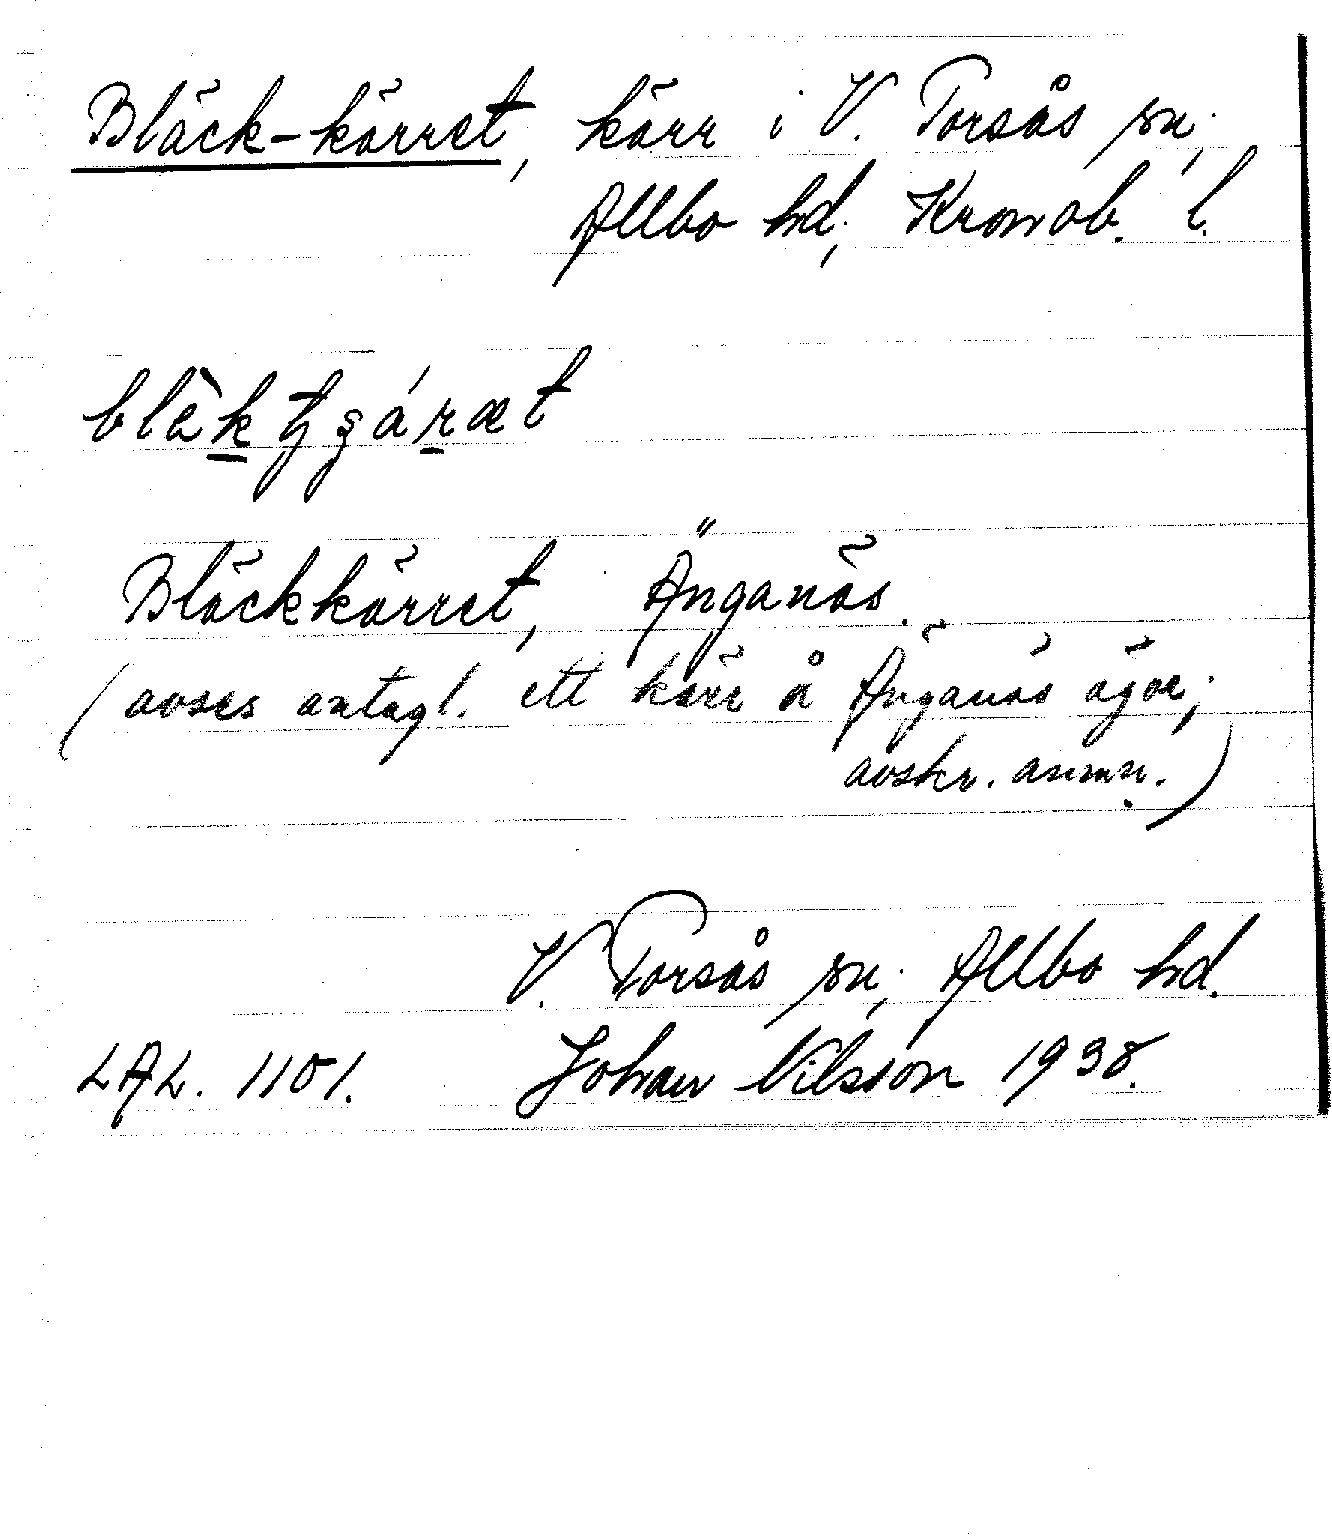 Bläck-kärret, kärr i V. Torsås sn;
Allbo hd; Kronob. l.
blὰk tʂáræt
Bläckkärret, Änganäs.
(avses antagl. ett kärr å Änganäs ägor;
avskr. anmn.)
V. Torsås sn; Allbo hd.
LAL. 1101. Johan Nilsson 1938.